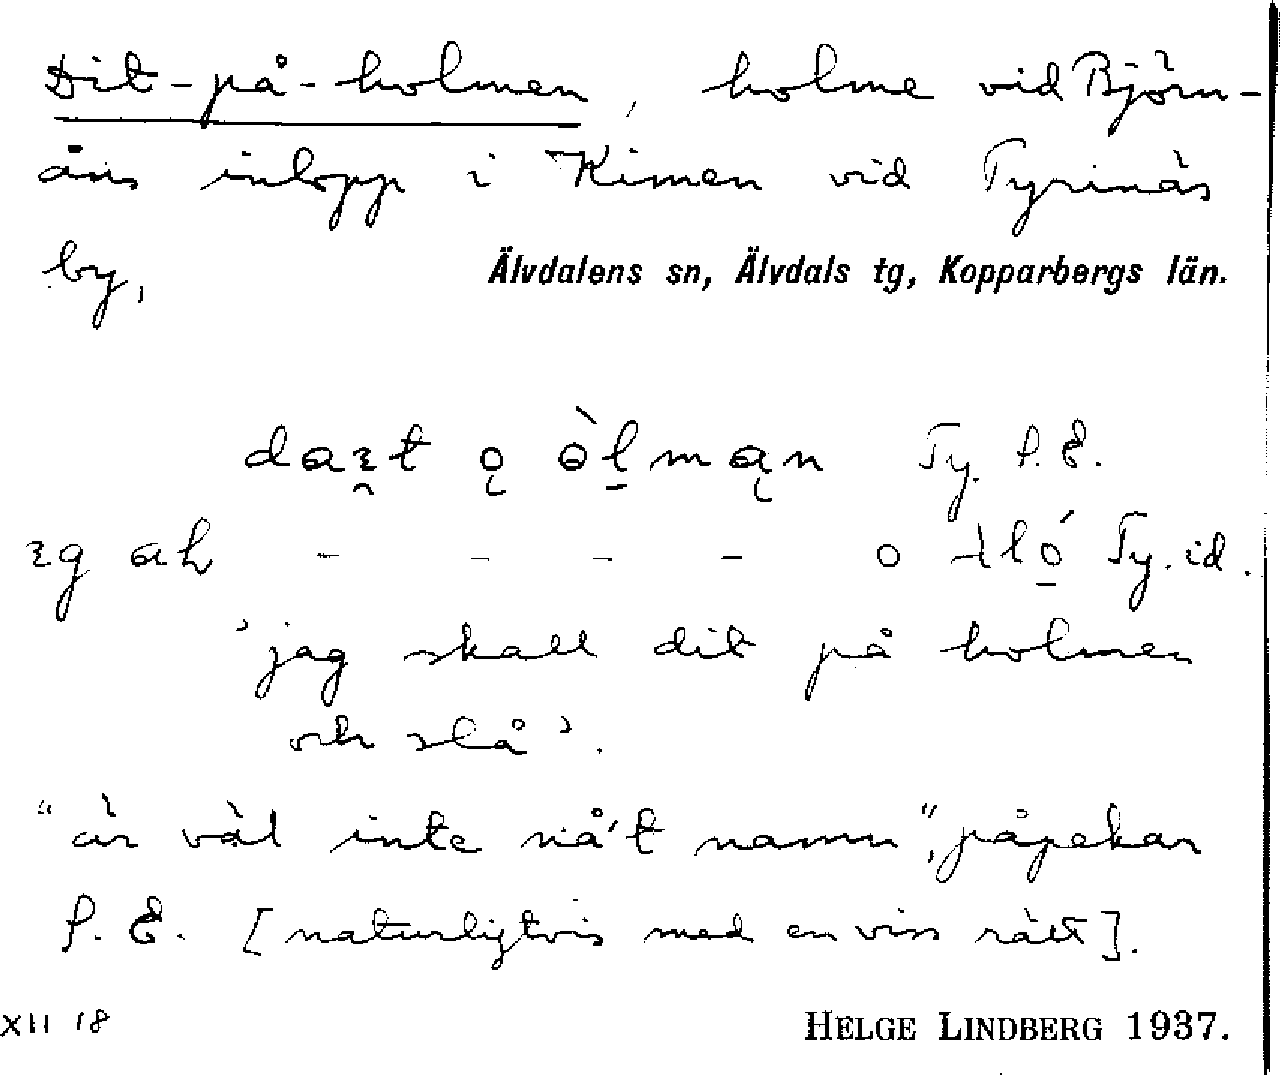 Dit-på-holmen, holme vid Björn-
åns inlopp i Kimen vid Tyrinäs
by, Älvdalens sn, Älvdals tg, Kopparbergs län.
Ty. P.E.
Ty. id.
'jag skall dit på holmen
och slå'.
"är väl inte nå't namn", påpekar
P. E. [naturligtvis med en viss rätt].
XII 18 HELGE LINDBERG 1937.